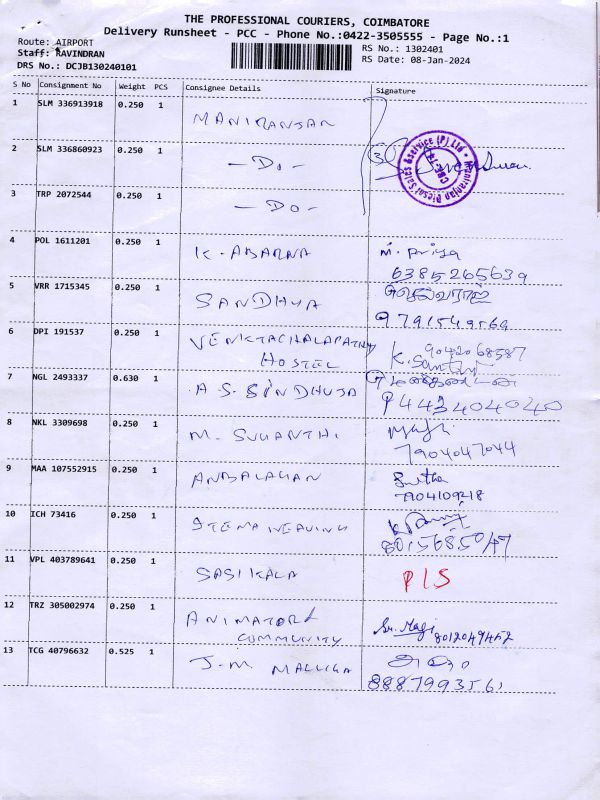 THE PROFESSIONAL COURIERS, COIMBATORE
Delivery Runsheet - PCC - Phone No.:0422-3505555 - Page No.:1
Route: AIRPORT
Staff: RAVINDRAN
DRS No.: DCJB130240101
RS No.: 1302401
RS Date: 08-Jan-2024
S No Consignment No Weight PCS Consignee Details Signature
1 SLM 336913918 0.250 1 MANIRANJAN
2 SLM 336860923 0.250 1 - Do -
3 TRP 2072544 0.250 1 - Do -
Maniranjan Diesel Sales & Service (P) Ltd
4 POL 1611201 0.250 1 K. ABARNA M. Priya
6385265639
5 VRR 1715345 0.250 1 SANDHYA செல்வராஜ்
9791549569
6 DPI 191537 0.250 1 VENKTACHALAPATHY 9042068587
HOSTEL K. Santhi
7 NGL 2493337 0.630 1 A.S. SINDHUJA
9443404040
8 NKL 3309698 0.250 1 M. SUGANTHI
7904047044
9 MAA 107552915 0.250 1 ANBALAGAN
7904109218
10 ICH 73416 0.250 1 ITEMA WEAVING
8015685047
11 VPL 403789641 0.250 1 SASIKALA P/S
12 TRZ 305002974 0.250 1 ANIMATORS
COMMUNITY Sr. Magi 8012049452
13 TCG 40796632 0.525 1 J.M. MALLIGA
8887993561